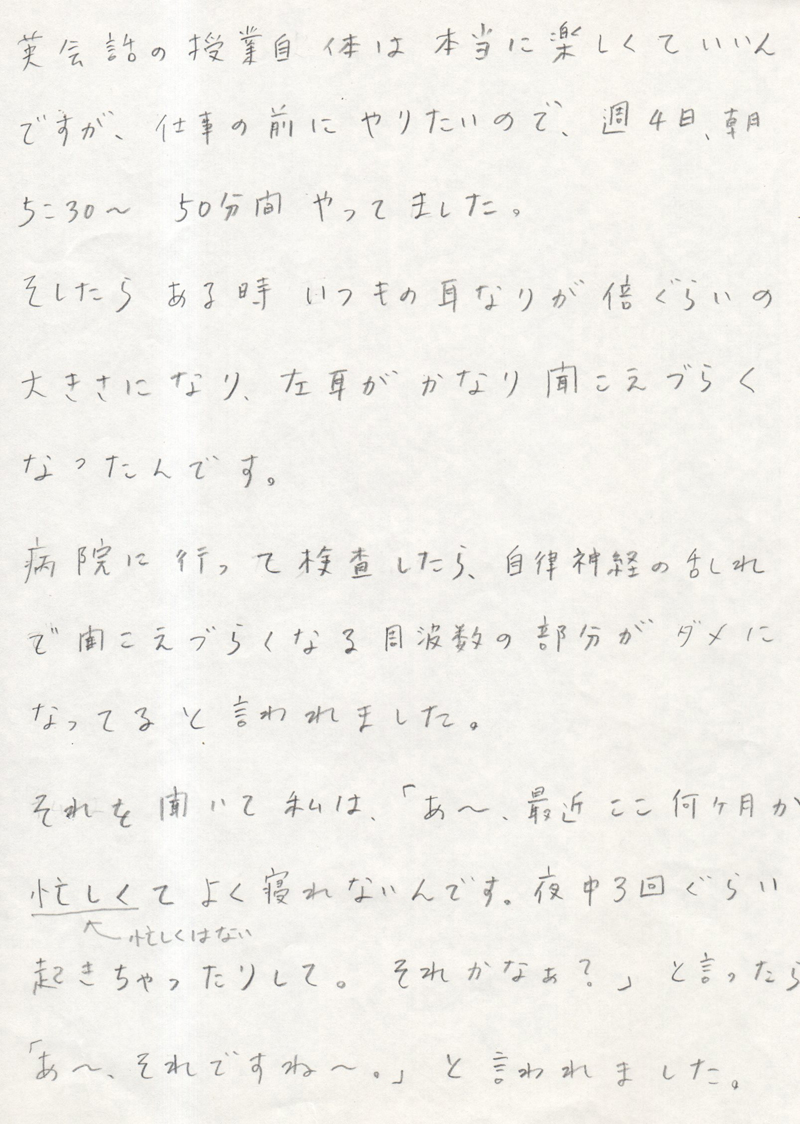 英会話の授業自体は本当に楽しくていいん
ですが、仕事の前にやりたいので、週4日、朝
5:30〜 50分間やってました。
そしたら ある時 いつもの耳なりが倍ぐらいの
大きさになり、左耳が かなり聞こえづらく
なったんです。
病院に行って検査したら、自律神経の乱れ
で聞こえづらくなる周波数の部分がダメに
なってると言われました。
それを聞いて私は、「あ〜、最近ここ何ヶ月か
忙しくてよく寝れないんです。夜中3回ぐらい
忙しくはない
起きちゃったりして。それかなぁ?」と言ったら
「あ〜、それですね〜。」と言われました。